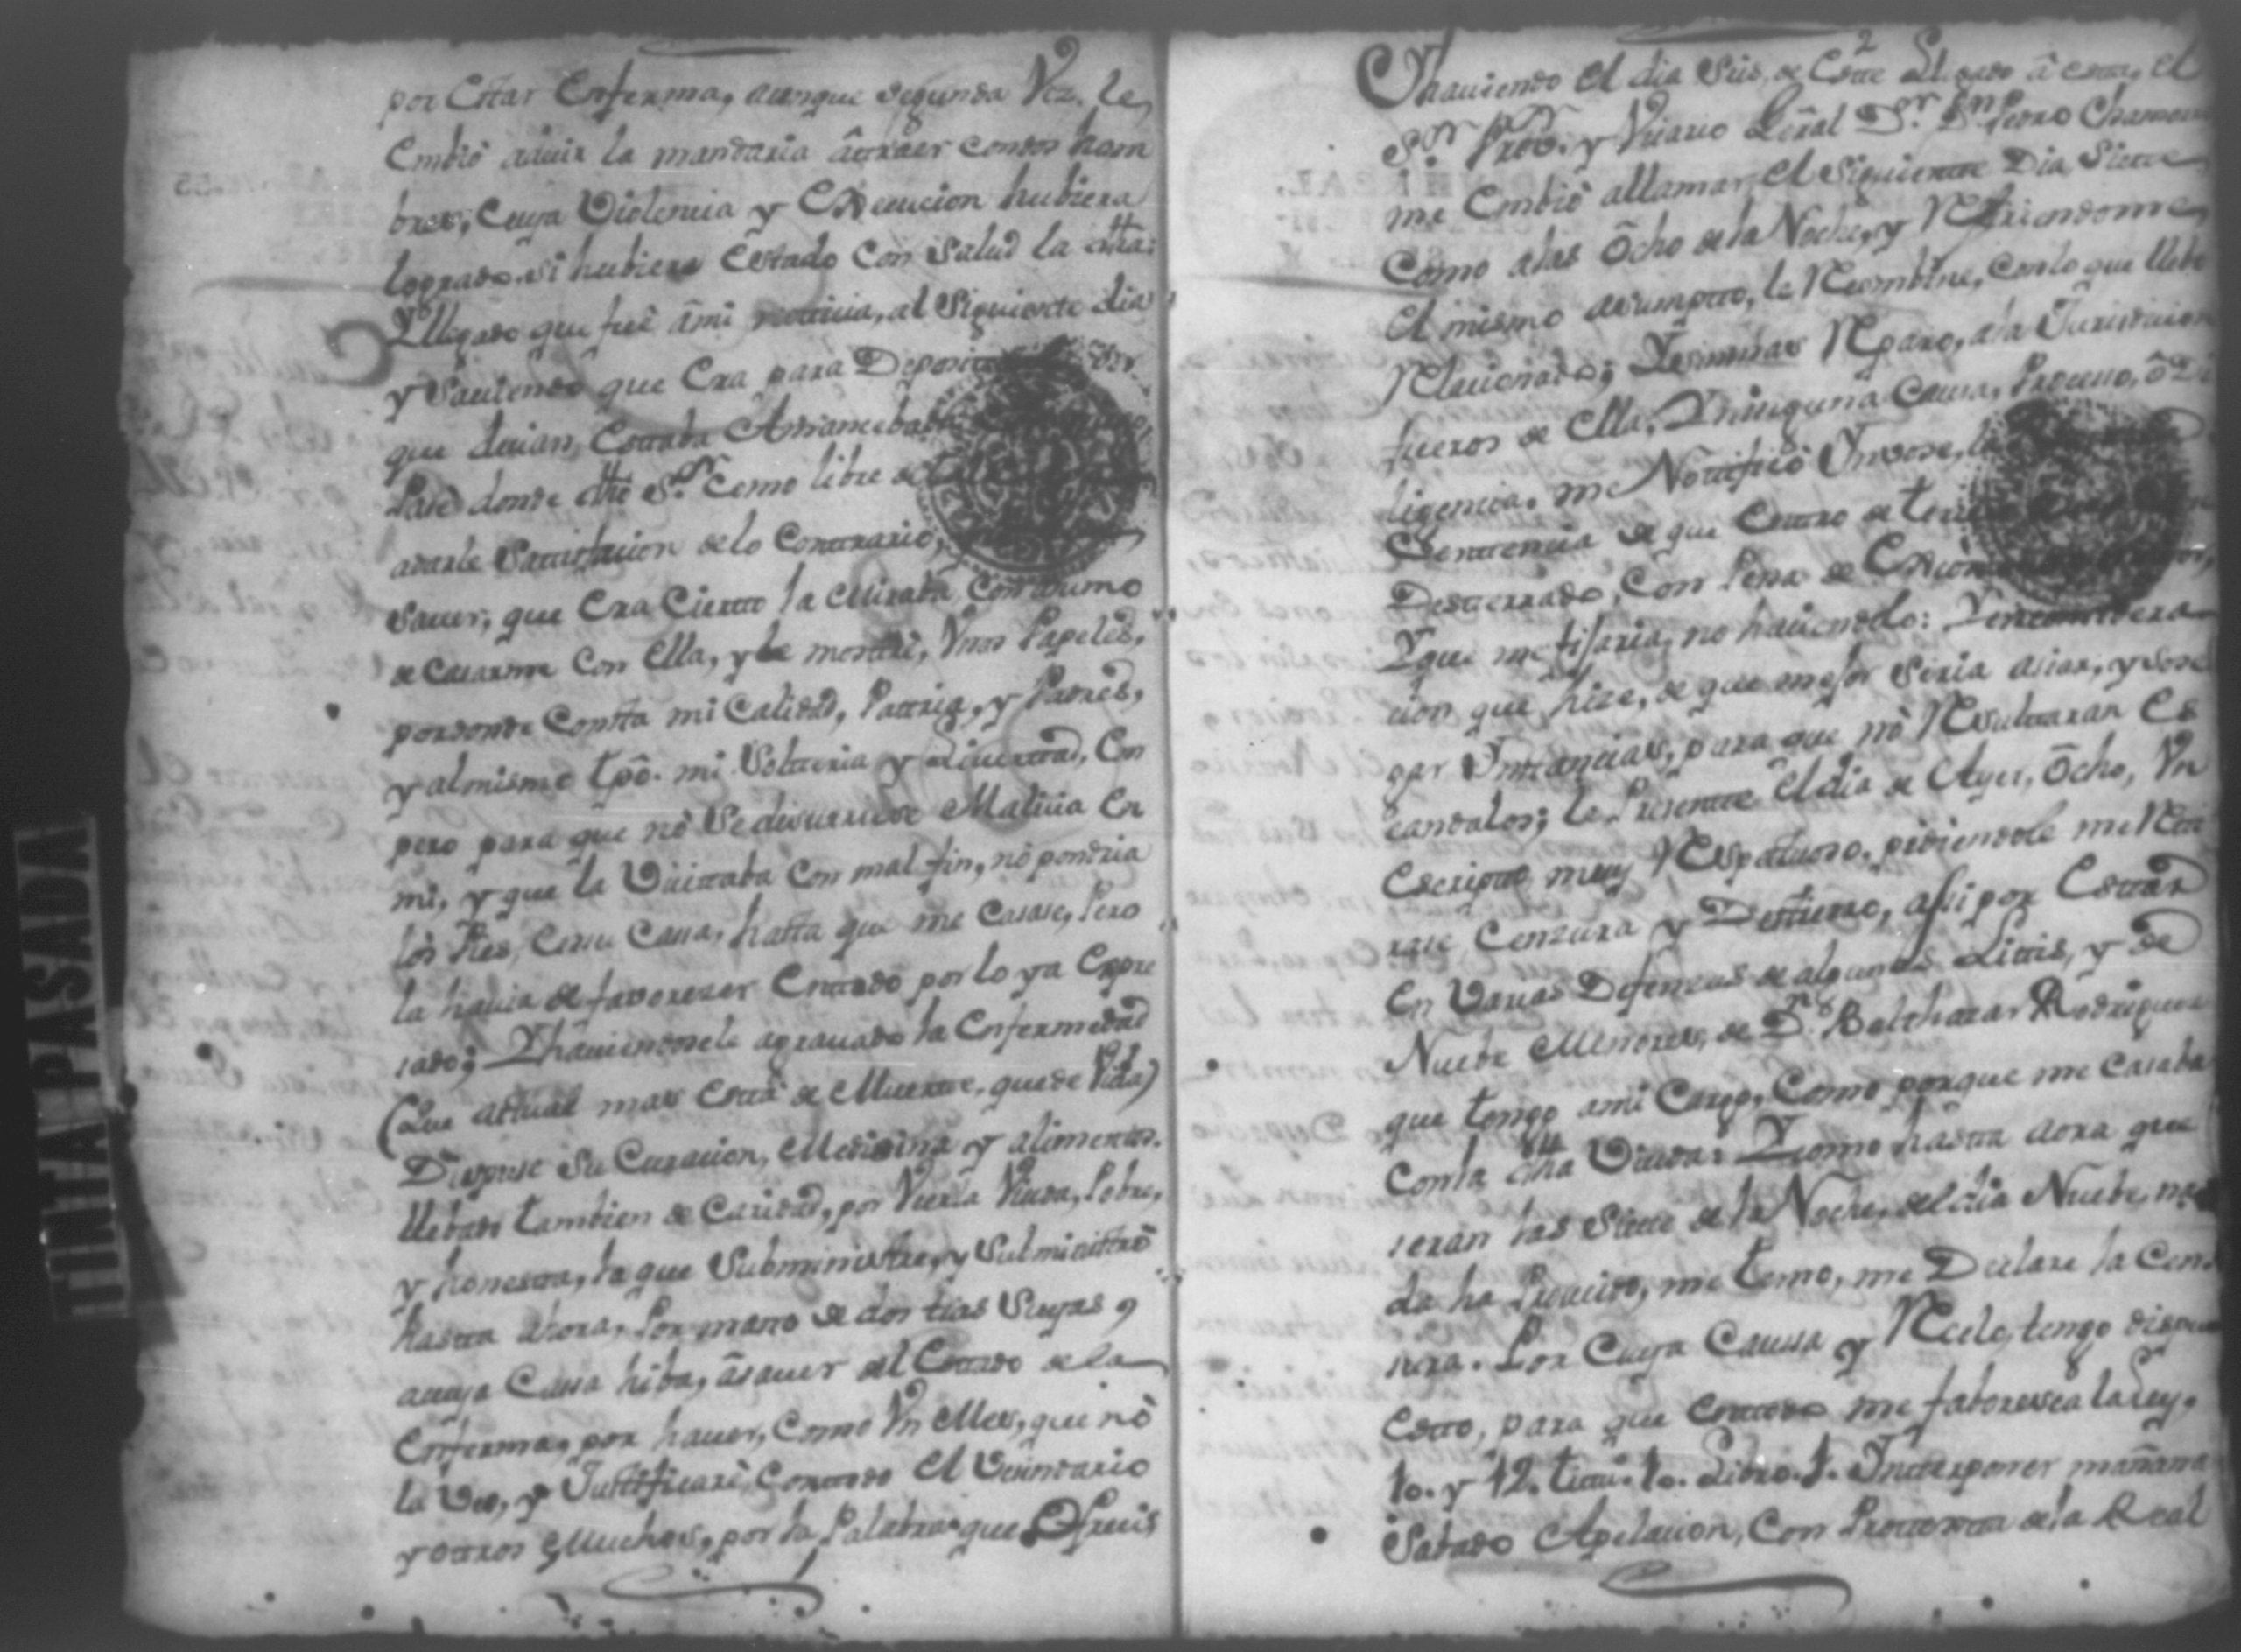 por Estar Enferma, aunque segunda Vez, le,
Embió adecir la mandaria âtraer condos hom
bres, Cuya Violencia y Execucion hubiera
logrado si hubiera Estado Con Salud la dha:
Yllegado que fué âmi noticia, al Siguiente dia
y Sauiendo que Era para
que decian, Estaba Amancebada
Pasé donde dho Sr. Como libre de
adarle Satisfacion delo Contrario,
Sauer, que Era Cierto la Miraba Con animo
de Casarme Con Ella, y le mostré, Vnos Papeles,
pordonde Consta mi Calidad, Patria, y Padres,
y almismo tpô. mi Solteria y Livertad, Con
pero para que nó Sediscurriese Malicia En
mi, y que la Visitaba Con mal fin, nó pondria
los Pies, Ensu Casa, hasta que me Casase, Pero
la hauia de favorezer Entodo por lo ya Expre
sado; Yhauiendosele agrauado la Enfermedad
(Que actual mas Está de Muerte, quede Vida)
Dispuse Su Curacion, Medisina y alimentos.
llebado tambien de Caridad, por Verla Viuda, Pobre,
y honesta, la que Subministre, y Sulministró
hasta ahora, Por mano de dos tias Suyas,
acuya Casa hiba, âsauer del Estado dela
Enferma, por hauer, Como Vn Mes, que nó
la Veo, y Justificaré, Contodo El Vecindario
y otros Muchos, por la Palabra que Ofrecis
2
Yhauiendo El dia Seis, de Este Llegado â esta, el
Sr. Prov.r y Vicario Genâl Dr. Dn. Pedro
me Embió allamar El Siguiente Dia Siete
Como alas Ôcho dela Noche, y Refiriendome,
El mismo asumpto, le Recombine, Conlo que llebo
Relacionado; Ysinmas Reparo, ala Jurisdicion
fueros de Ella, Yninguna Causa, Proceso, ô Di
ligencia, me Notificó Ynvose,
Sentencia de que Entro de
Desterrado, Con Pena de
Yque me tisaria, no haciendolo:
cion que hize, de que mejor Seria
gar Ynstancias, para que nó Resultaran Es
candalos; le Presente El dia de Ayer, Ôcho, Vn
Escripto muy Respectuoso, pidiendole me Reti
rase Cenzura y Destierro, assi por Estar
En Varias Defenzas de algunas Littis, y de
Nuebe Menores, de Dn. Balthazar Rodriguez
que tengo ami Cargo, Como porque me Casaba
Conla dha Viuda: Ycomo hasta aora que
seran las Siete dela Noche, deldia Nuebe, na
da ha Proueido, me temo, me Declare la Cen
zura. Por Cuya Caussa y Recelo, tengo dispue
Esto, para que Entodo me faboresca la Ley,
10. y 12. titu. 10. Libro. 1. Ynterponer mañana
Sabado Apelacion, Con Protesta dela Real
TINTA PASADA